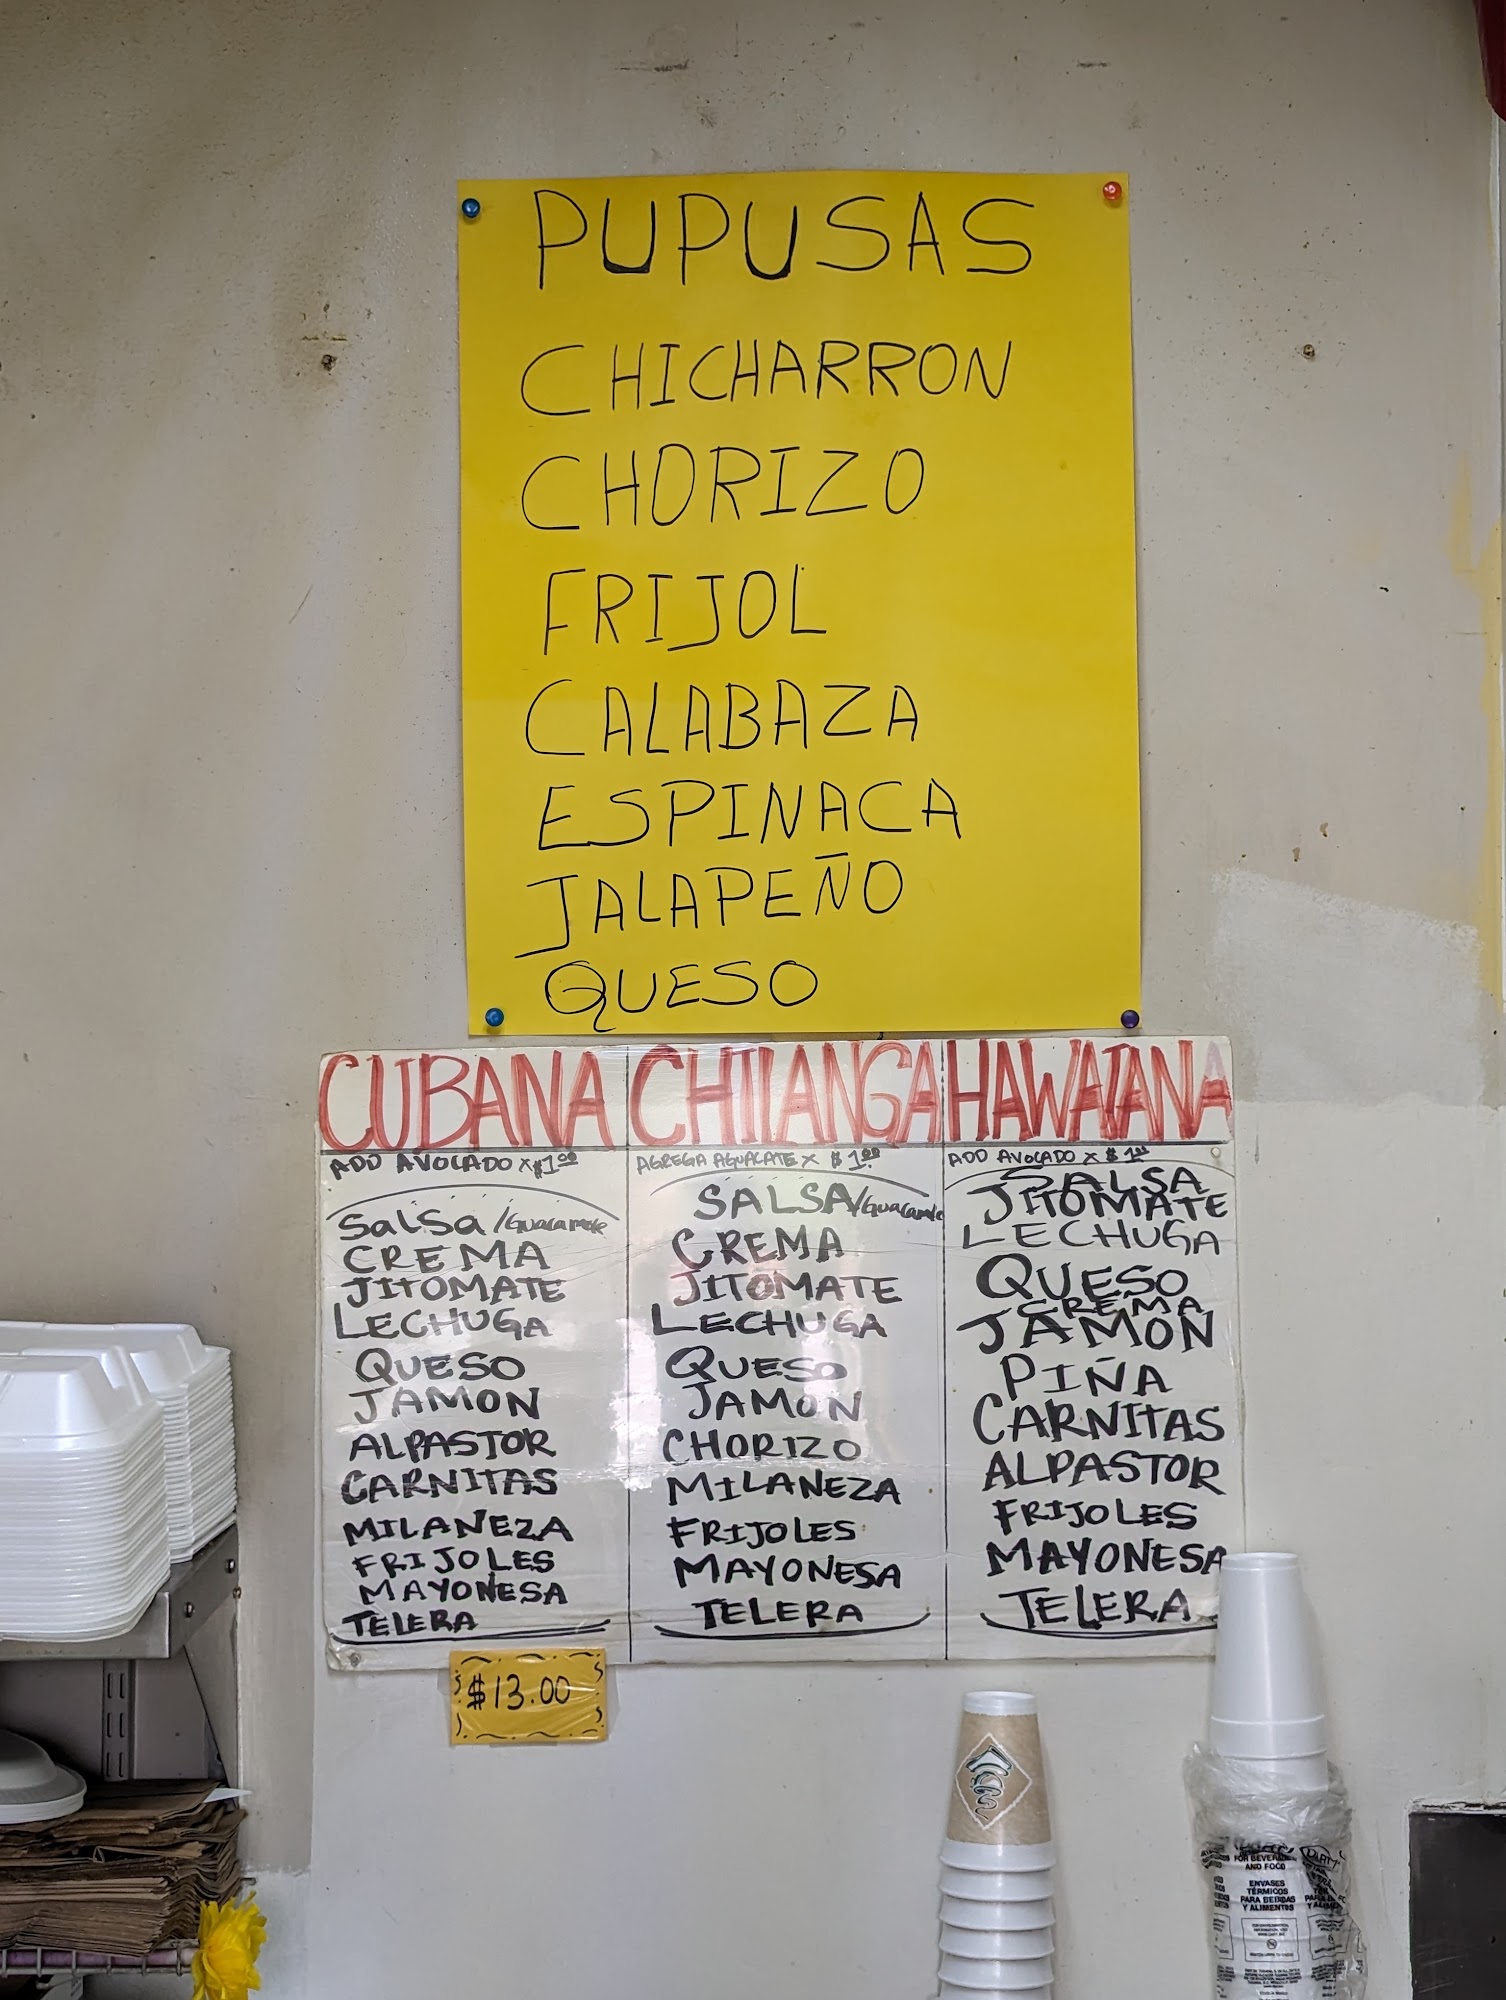 PUPUSAS
CHICHARRON
CHORIZO
FRIJOL
CALABAZA
ESPINACA
JALAPEÑO
QUESO
CUBANA
ADD AVOCADO x $1.00
Salsa/Guacamole
CREMA
JITOMATE
LECHUGA
QUESO
JAMON
ALPASTOR
CARNITAS
MILANEZA
FRIJOLES
MAYONESA
TELERA
$13.00
CHILANGA
AGREGA AGUACATE x $1.00
SALSA/Guacamole
CREMA
JITOMATE
LECHUGA
QUESO
JAMON
CHORIZO
MILANEZA
FRIJOLES
MAYONESA
TELERA
HAWAIANA
ADD AVOCADO x $1.00
SALSA
JITOMATE
LECHUGA
QUESO
CREMA
JAMON
PIÑA
CARNITAS
ALPASTOR
FRIJOLES
MAYONESA
TELERA
FOR BEVERAGE
AND FOOD
ENVASES
TÉRMICOS
PARA BEBIDAS
Y ALIMENTOS